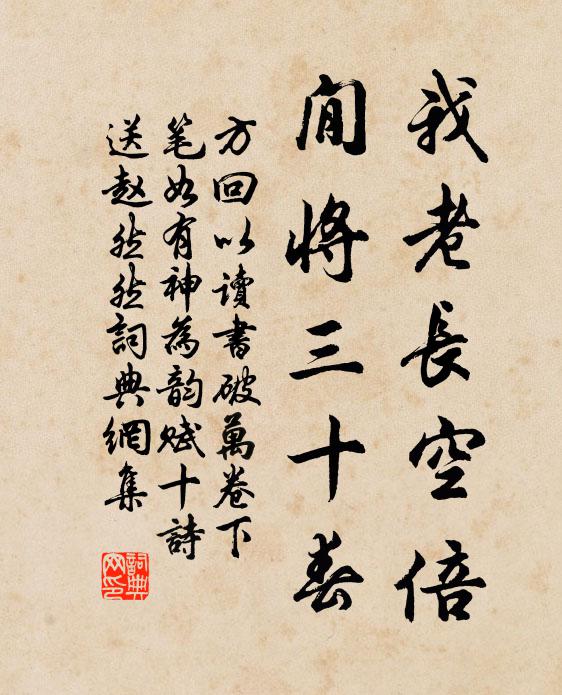 我老長空倍
閒將三十春
方回以讀書破萬卷下
笔如有神為韵赋十詩
送赵然然詞典網集
詞典
网印